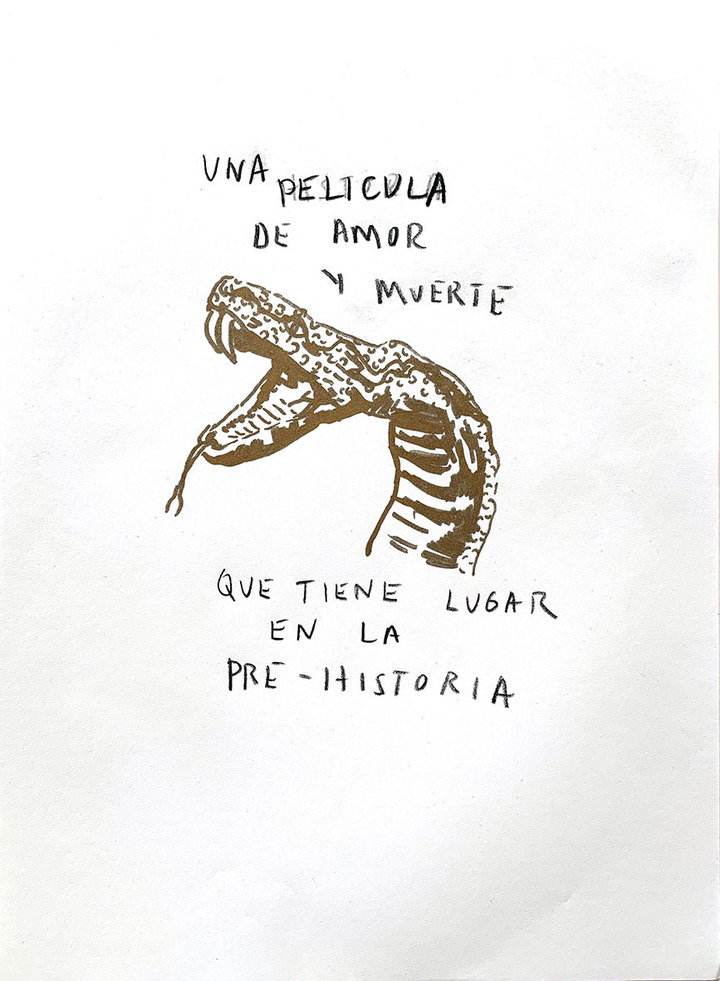 UNA PELICULA
DE AMOR
Y MUERTE
QUE TIENE LUGAR
EN LA
PRE-HISTORIA